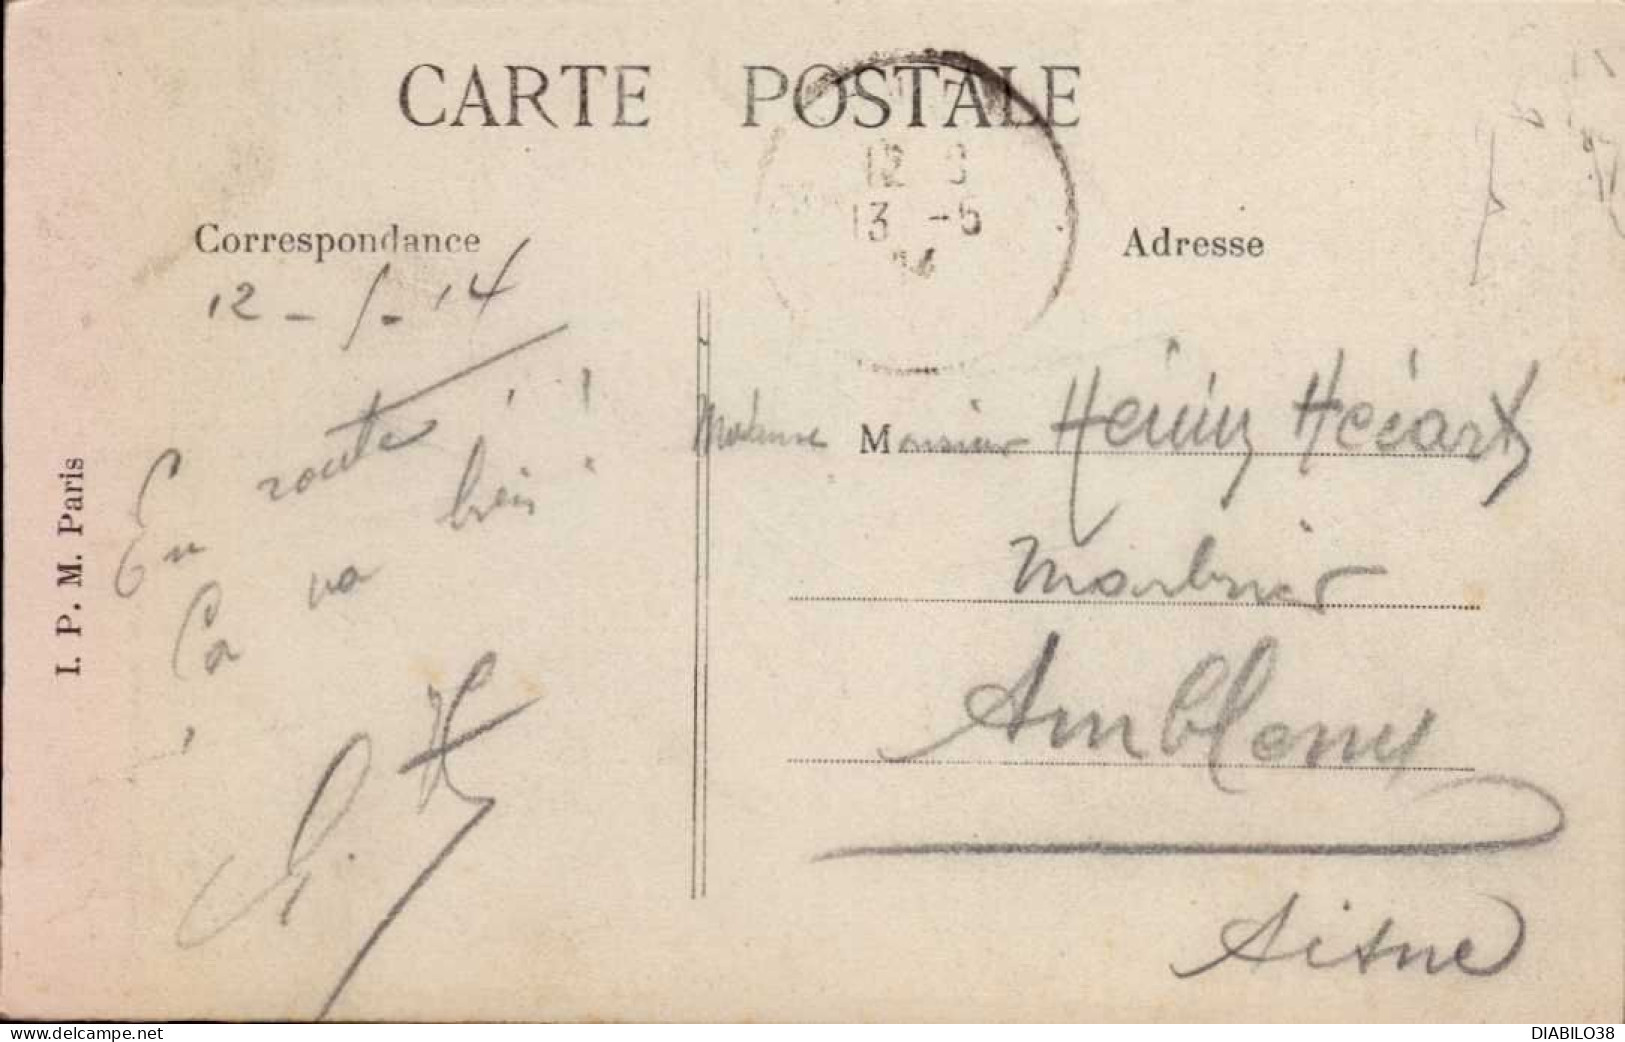 CARTE POSTALE
12
13 -5
14
Correspondance
Adresse
12-5-14
En route !
Ça va bien !
H
Madame Monsieur Hénin Hécart
Marbrier
Ambleny
Aisne
I. P. M. Paris
www.delcampe.net
DIABILO38